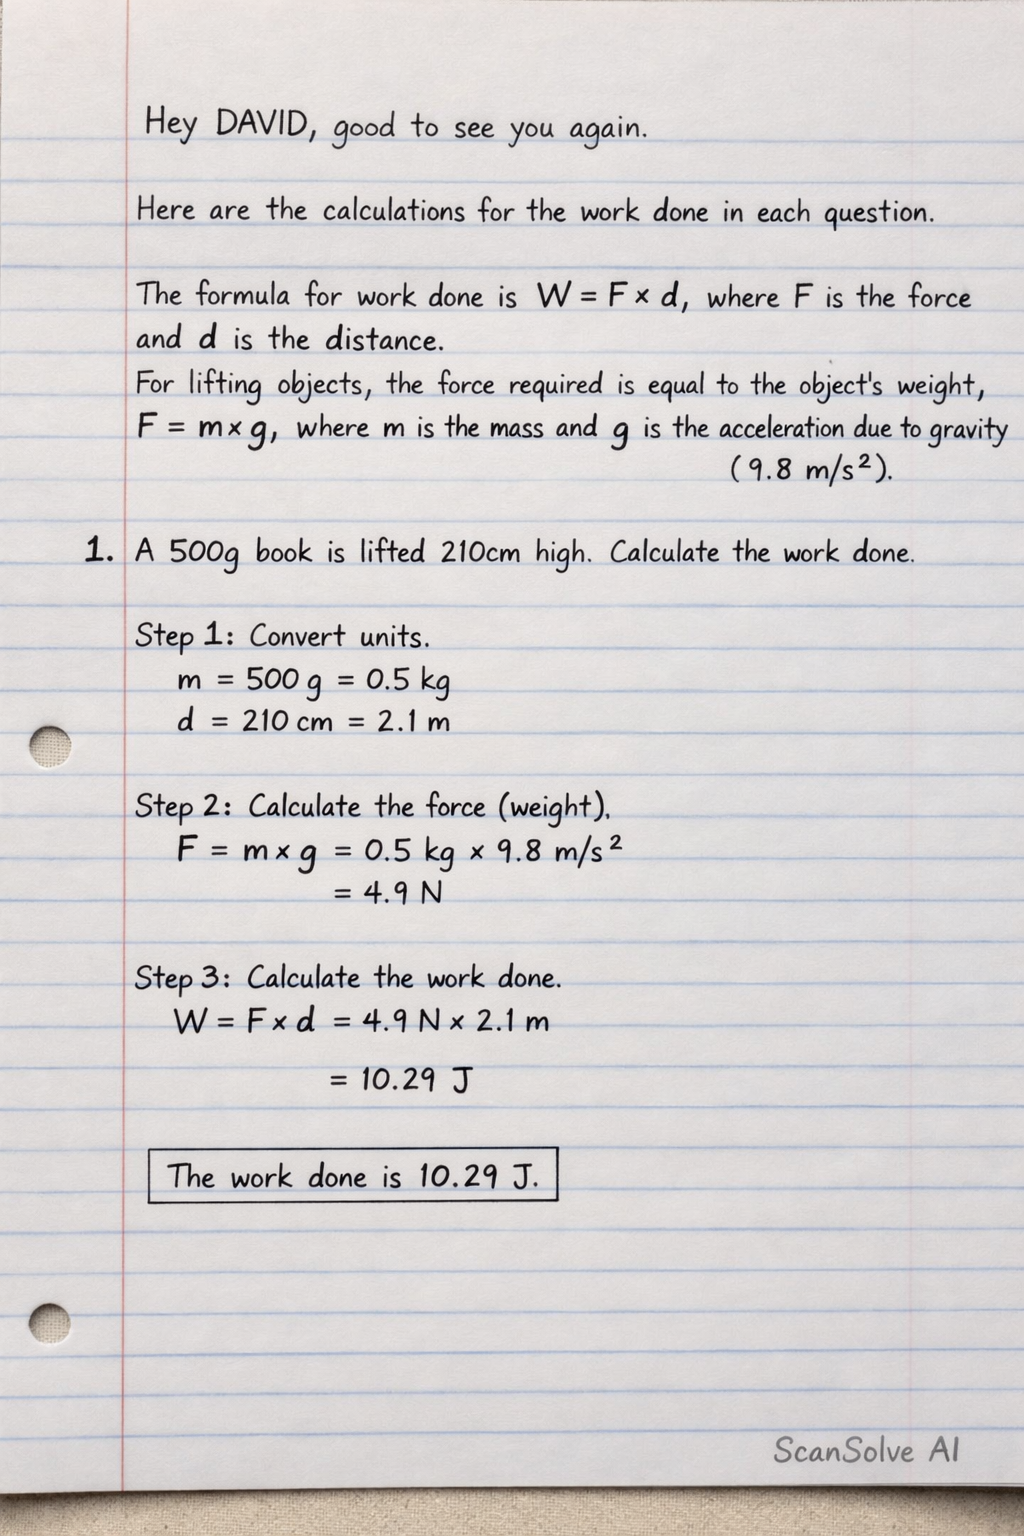 Hey DAVID, good to see you again.
Here are the calculations for the work done in each question.
The formula for work done is W = F × d, where F is the force
and d is the distance.
For lifting objects, the force required is equal to the object's weight,
F = m × g, where m is the mass and g is the acceleration due to gravity
(9.8 m/s²).
1. A 500g book is lifted 210cm high. Calculate the work done.
Step 1: Convert units.
m = 500 g = 0.5 kg
d = 210 cm = 2.1 m
Step 2: Calculate the force (weight).
F = m × g = 0.5 kg × 9.8 m/s²
= 4.9 N
Step 3: Calculate the work done.
W = F × d = 4.9 N × 2.1 m
= 10.29 J
The work done is 10.29 J.
ScanSolve AI